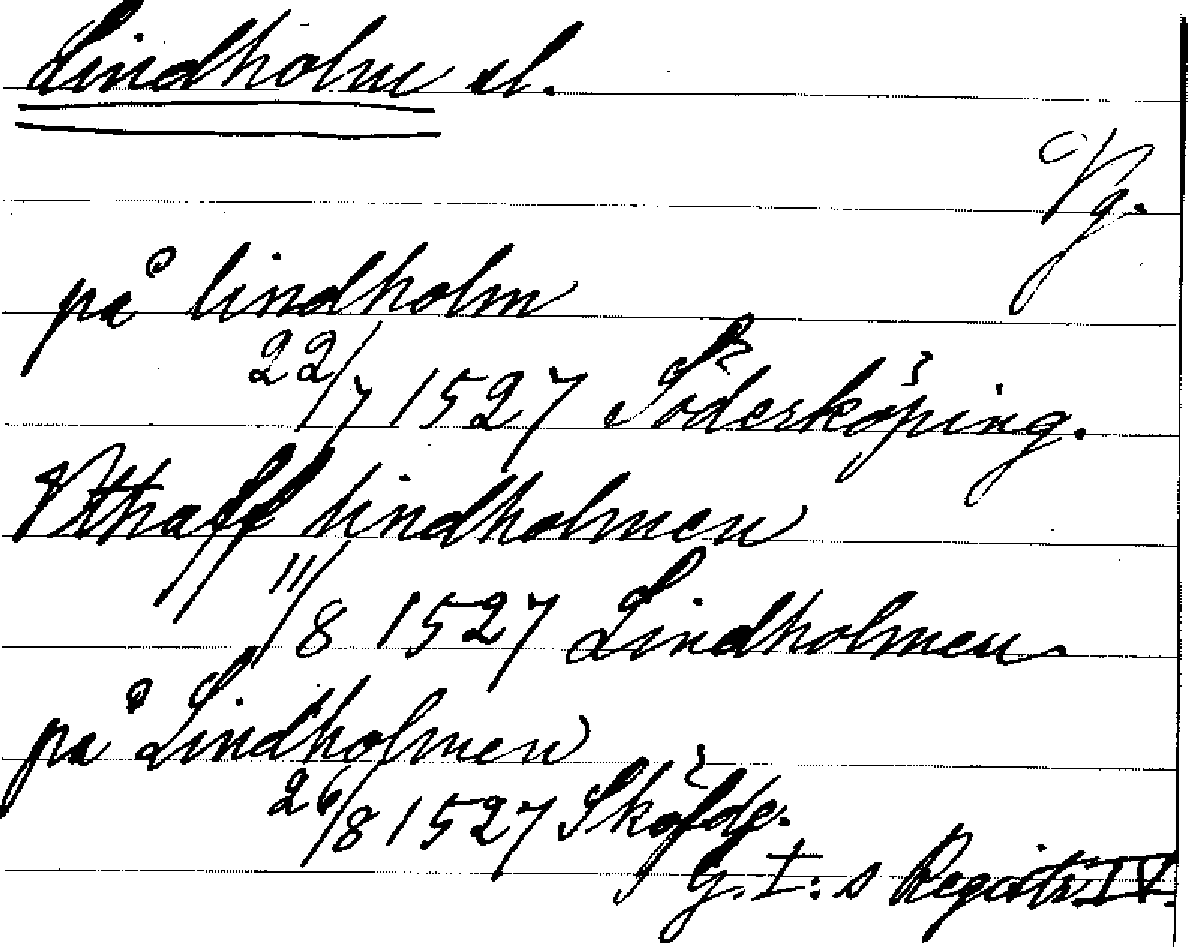 Lindholm sl.
Vg.
på lindholm
22/7 1527 Söderköping.
Vthaff lindholmen
11/8 1527 Lindholmen
på Lindholmen
26/8 1527 Sköfde.
G. I:s Registr. IV.